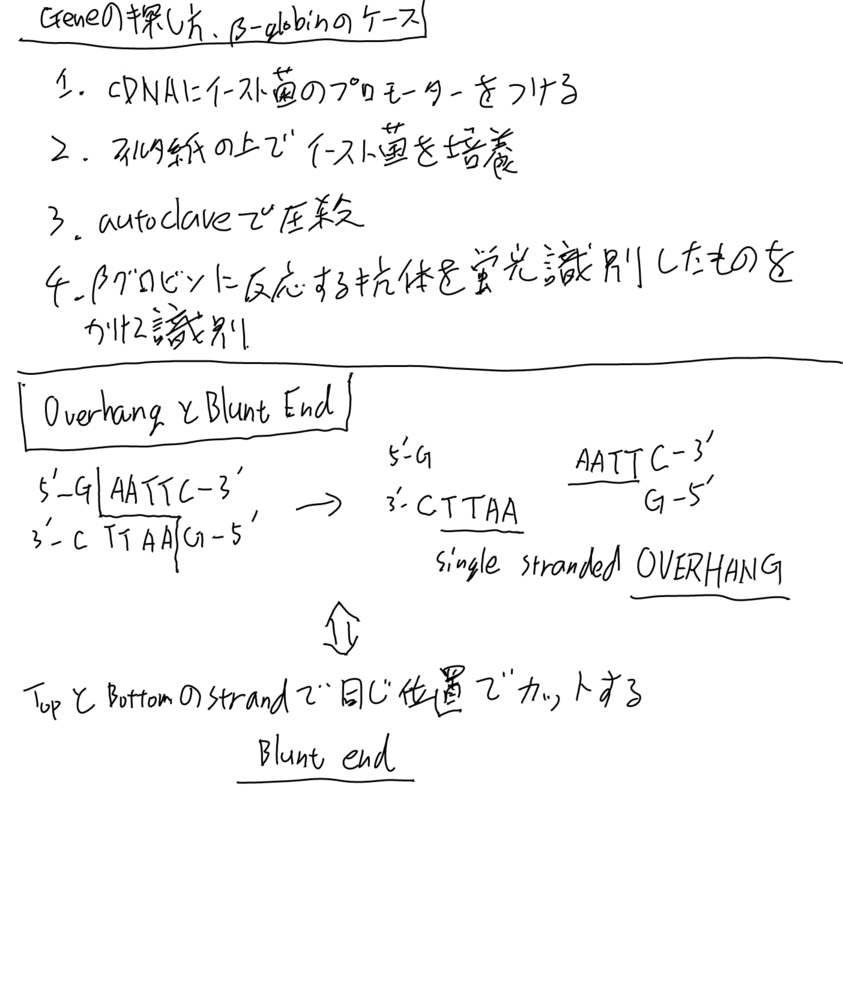 Geneの探し方、β-globinのケース
1. cDNAにイースト菌のプロモーターをつける
2. ろ紙の上でイースト菌を培養
3. autoclaveで圧
4. βグロビンに反応する抗体を蛍光識別したものを
かけて識別
OverhangとBlunt End
5'-G AATTC-3'
3'-C TTAA G-5'
→
5'-G
3'-CTTAA
AATTC-3'
G-5'
single stranded OVERHANG
⇕
TopとBottomのstrandで同じ位置でカットする
Blunt end